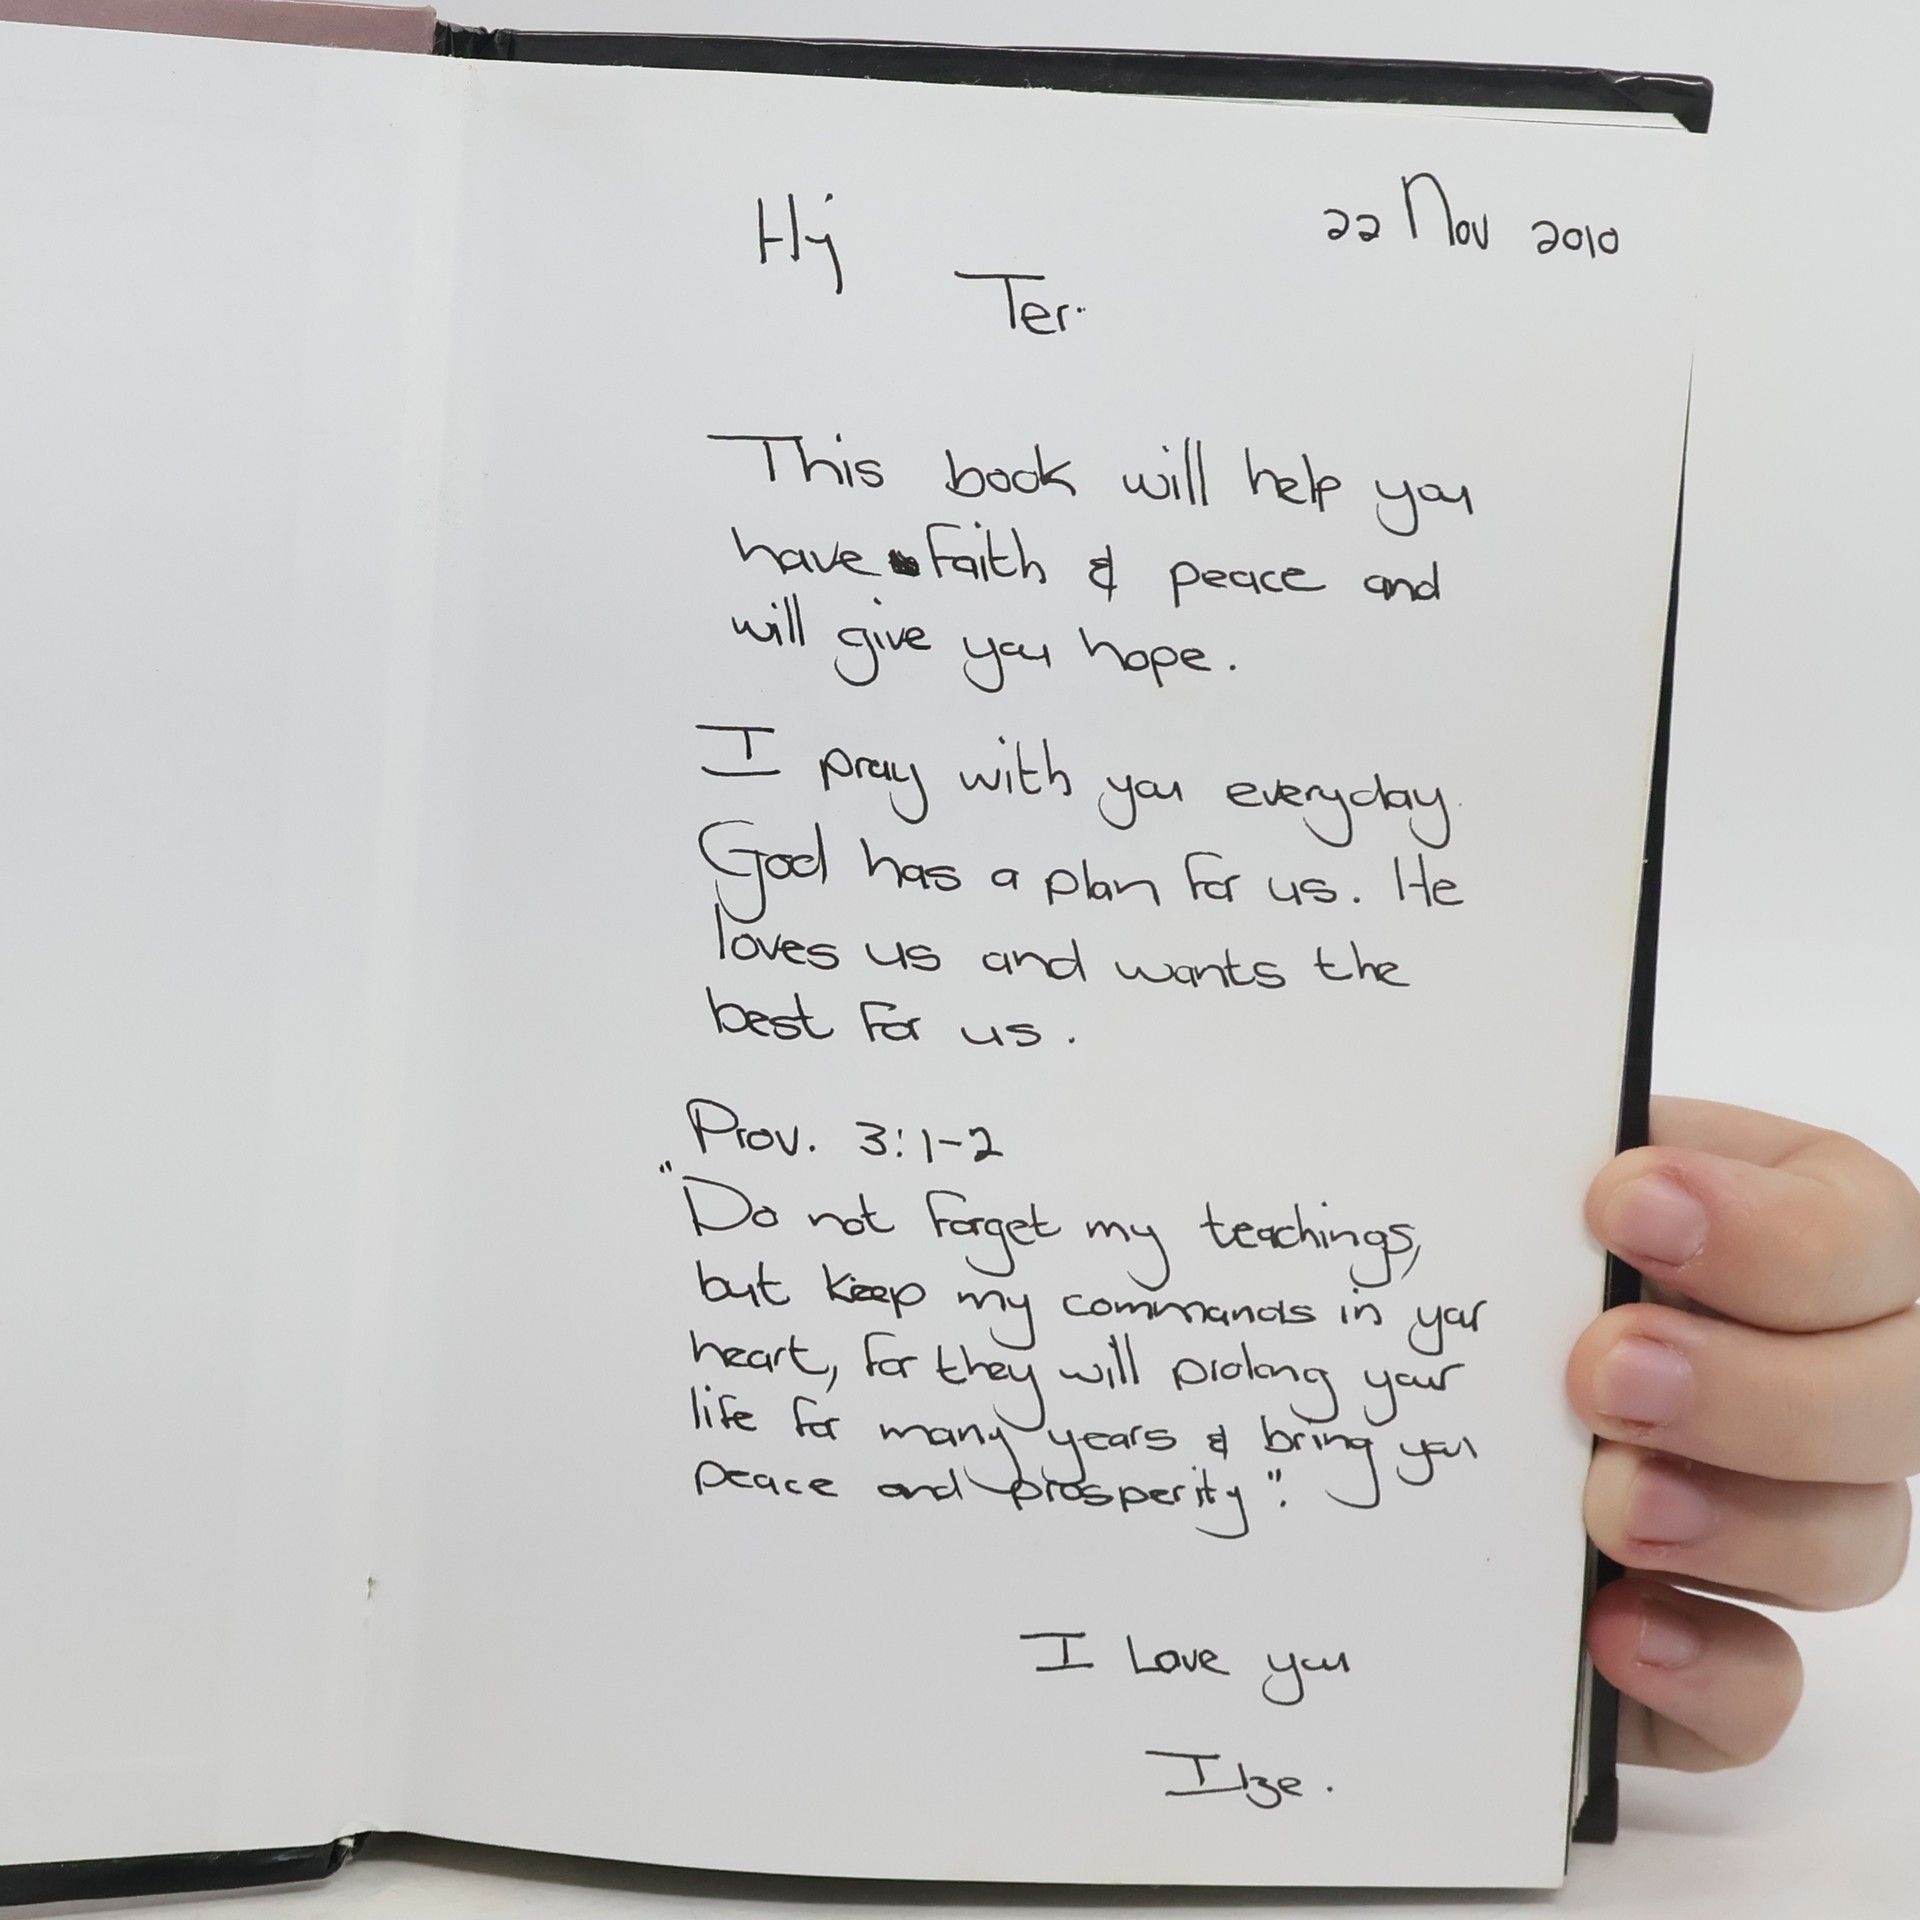 Hi
22 Nov 2010
Ter..
This book will help you
have Faith & peace and
will give you hope.
I pray with you everyday.
God has a plan for us. He
loves us and wants the
best for us.
Prov. 3:1-2
"Do not forget my teachings,
but keep my commands in your
heart, for they will prolong your
life for many years & bring you
peace and prosperity".
I Love you
Ilze.